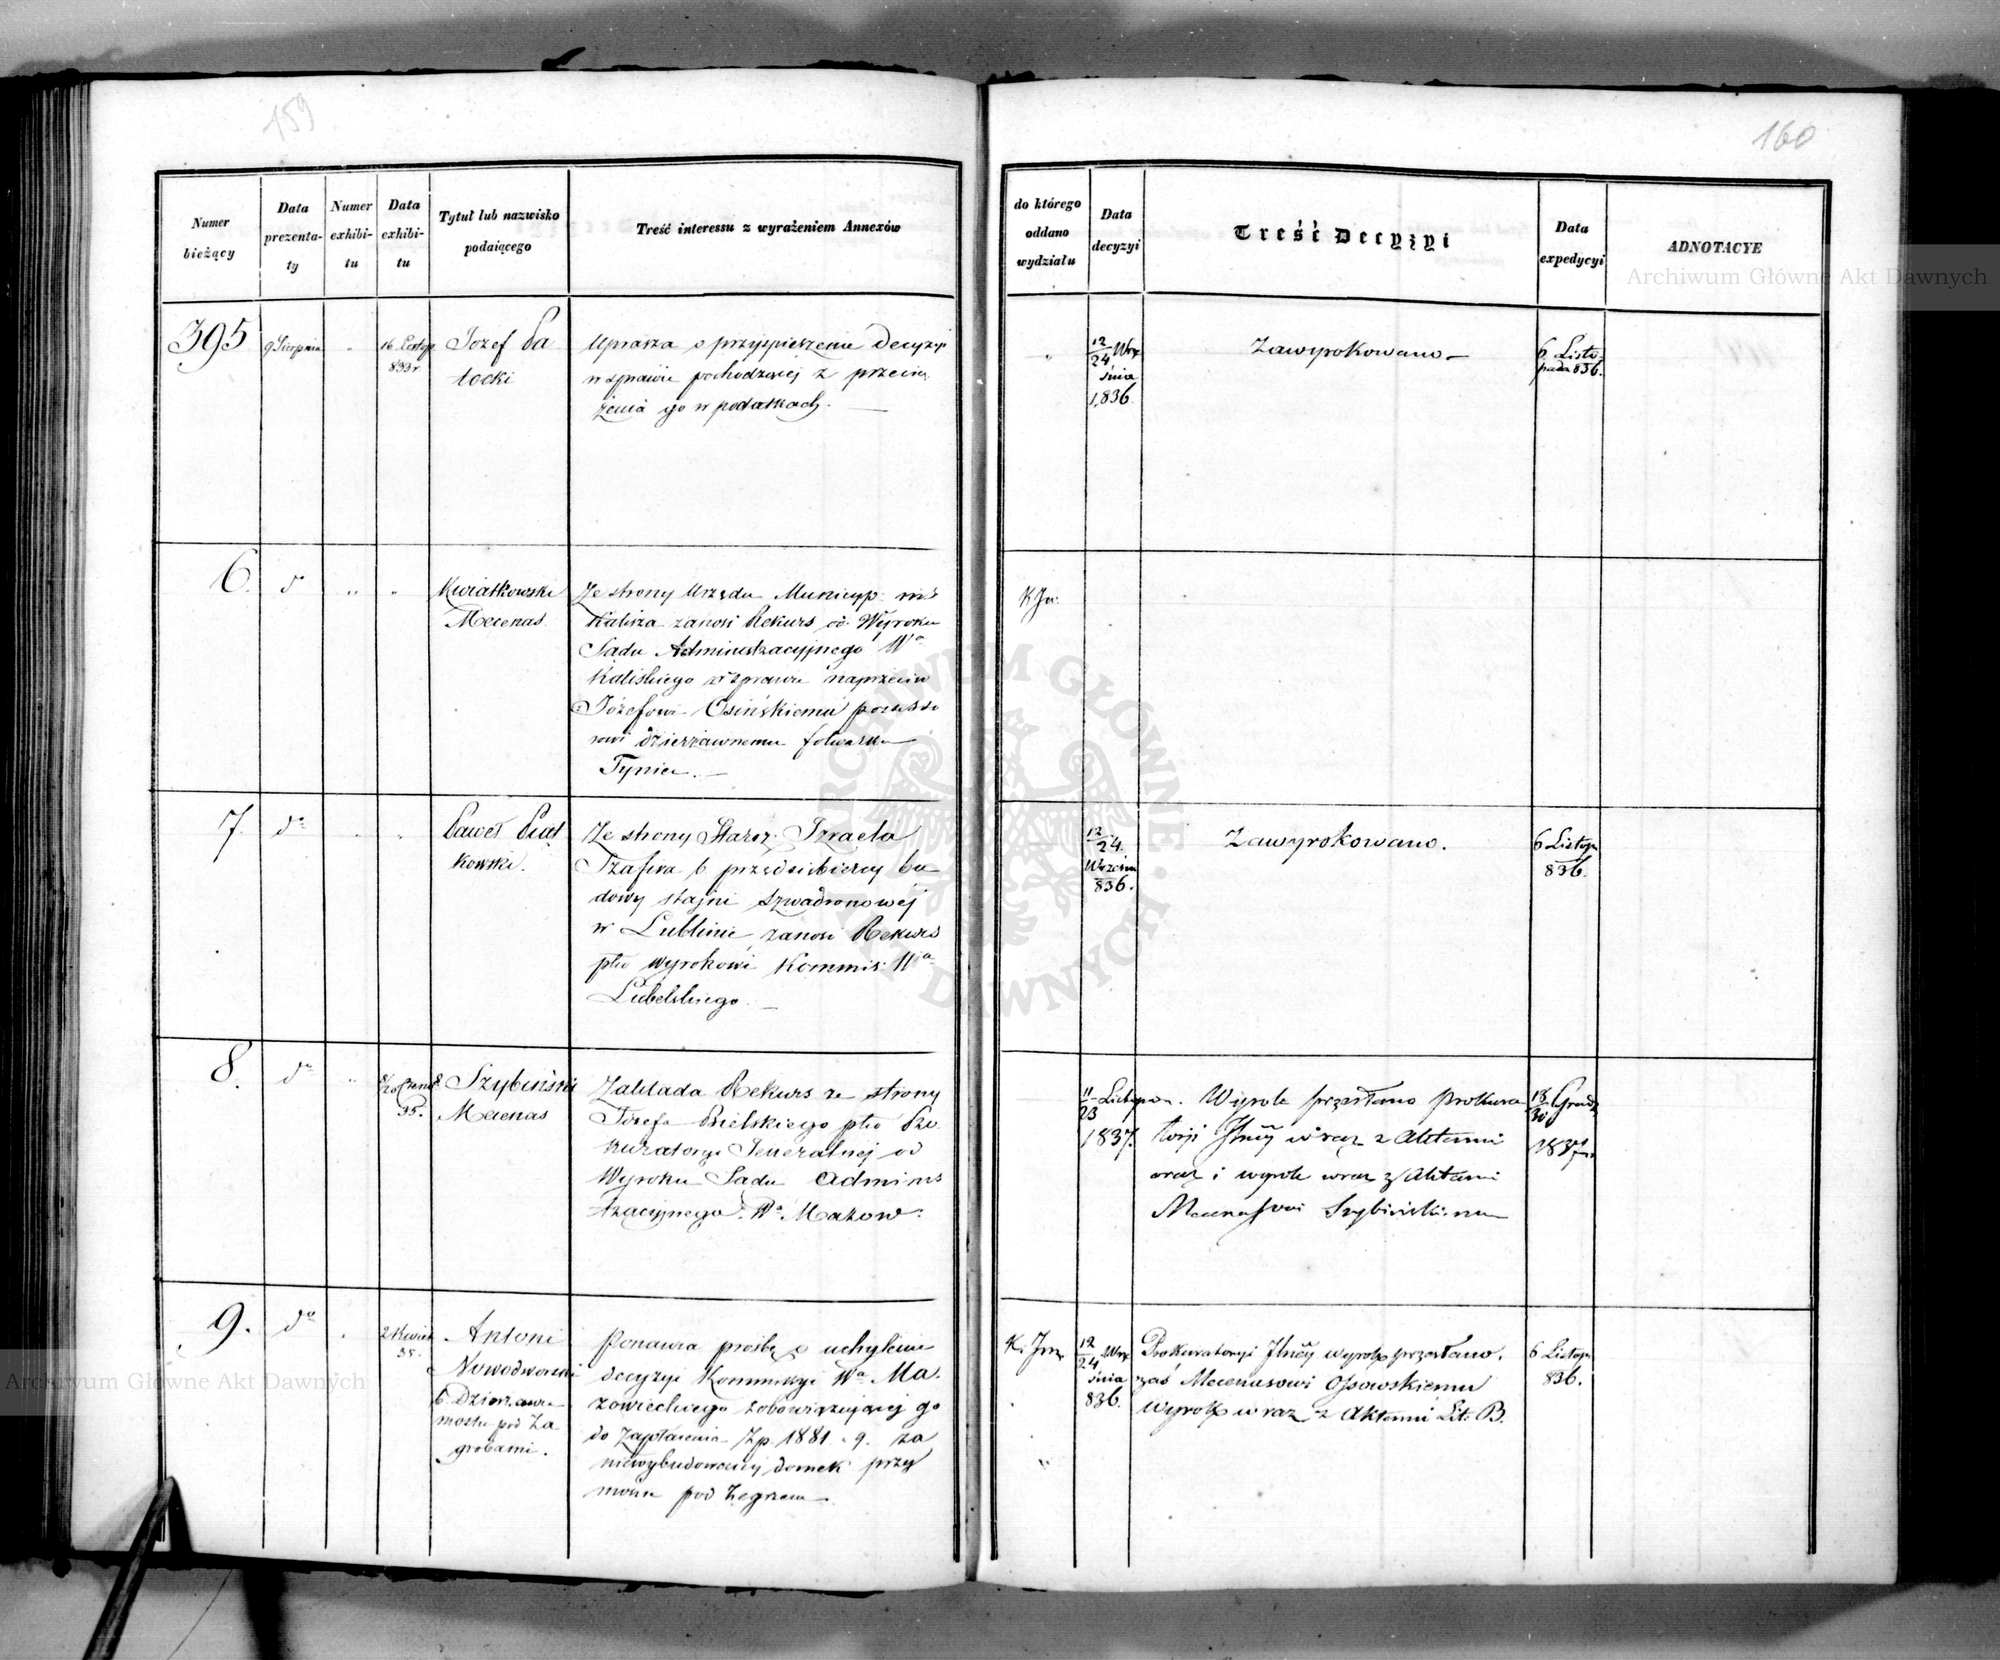 159
Numer
bieżący
Data
prezenta-
ty
Numer
exhibi-
tu
Data
exhibi-
tu
Tytuł lub nazwisko
podaiącego
Treść interessu z wyrażeniem Annexów
395
9 Sierpnia
"
16 Listop.
833 r.
Jozef Pa
tocki
Uprasza o przyspieszenie Decyzyi
w sprawie pochodzącej z przecią
żenia go w podatkach. —
6.
d
"
"
Kwiatkowski
Mecenas
Ze strony Urzędu Municyp.
Kalisza zanosi Rekurs od Wyroku
Sądu Administracyjnego Wa
Kaliskiego w sprawie naprzeciw
Józefowi Osińskiemu posesso
rowi dzierżawnemu folwarku
Tyniec. —
7.
do
"
"
Paweł Piąt
kowski.
Ze strony Staroz. Izraela
Szafira b przedsiebiercy bu
dowy stajni szwadronowej
w Lublinie zanosi Rekurs
pko wyrokowi Kommis: Wa
Lubelskiego. —
8.
do
"
35.
Szybiński
Mecenas
Zakłada Rekurs ze strony
Józefa Bielskiego pko Pro
kuratoryi Jeneralnej od
Wyroku Sądu Adminis
tracyjnego Wa Mazow:
9.
do
"
2 Kwiet
35.
Antoni
Nowodworski
b. Dzierżawca
mostu pod Za
grobami.
Ponawia prośbę o uchylenie
decyzyi Kommissyi Wa Ma.
zowieckiego zobowiązującej go
do zapłacenia Zp. 1881 g. 9. za
niewybudowany domek przy
moście pod Zegrzem
160
do którego
oddano
wydziału
Data
decyzyi
Treść Decyzyi
Data
expedycyi
ADNOTACYE
"
12/24 Wrze
śnia
1,836.
Zawyrokowano —
6 Listo-
pada 836.
12/24.
Wrześn
836.
Zawyrokowano.
6 Listop
836.
11/23 Listopada.
1837.
Wyrok przesłano Prokura
toryi Jlnéj wraz z Aktami
oraz i wyrok wraz z Aktami
Mecenasowi Szybińskiemu
18/30 Grud
1837.
12/24 Wrze
śnia
836.
Prokuratoryi Jlnéj wyrok przesłano.
zaś Mecenasowi Ossowskiemu
Wyrok wraz z Aktami Lit: B.
6 Listop
836.
Archiwum Główne Akt Dawnych
Archiwum Główne Akt Dawnych
ARCHIWUM GŁÓWNE AKT DAWNYCH